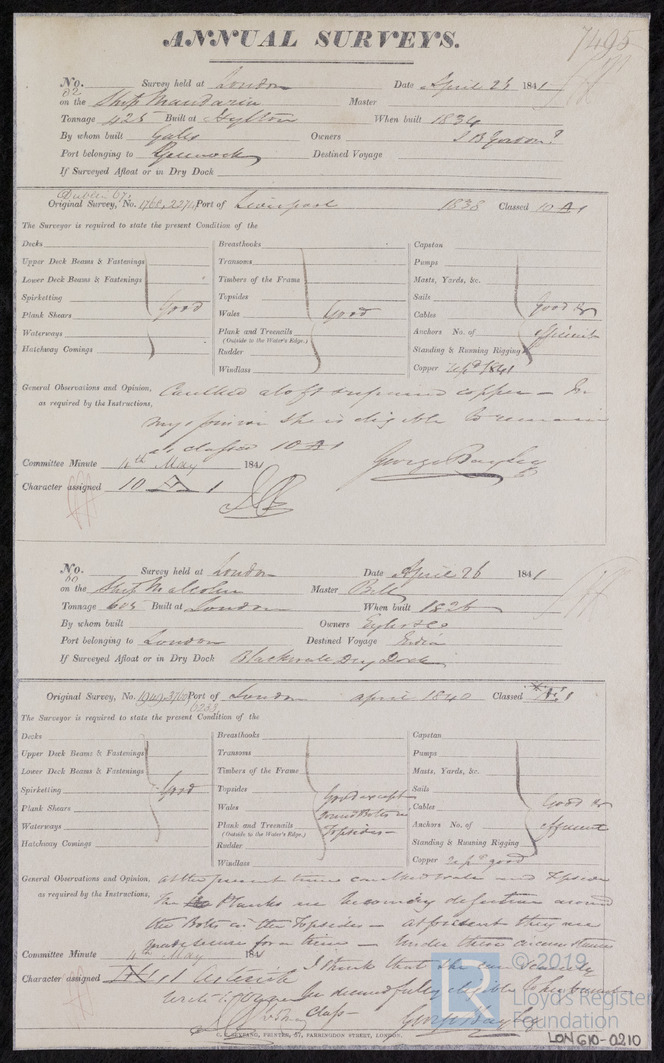 ANNUAL SURVEYS.
7495
No. 52 Survey held at London Date April 26 1841
on the Ship Mandarin Master
Tonnage 425 Built at Hylton When built 1834
By whom built Gales Owners
Port belonging to Greenock Destined Voyage
If Surveyed Afloat or in Dry Dock
Original Survey, No. Port of Liverpool 1838 Classed 10 A1
The Surveyor is required to state the present Condition of the
Decks Breasthooks Capstan
Upper Deck Beams & Fastenings Transoms Pumps
Lower Deck Beams & Fastenings Timbers of the Frame Masts, Yards, &c.
Spirketting Good Topsides Sails
Plank Shears Wales Good Cables Good &
Waterways Plank and Treenails Anchors No. of efficient
(Outside to the Water's Edge.)
Hatchway Comings Rudder Standing & Running Rigging
Windlass Copper Rep'd 1841
General Observations and Opinion, Caulked aloft repaired copper – In
as required by the Instructions, my opinion she is eligible to remain
as classed 10 A1
Committee Minute 4th May 1841 George Bayley
Character assigned 10 A 1
No. 60 Survey held at London Date April 26 1841
on the Ship Malcolm Master Bell
Tonnage 603 Built at London When built 1826
By whom built Owners Eyles & Co
Port belonging to London Destined Voyage India
If Surveyed Afloat or in Dry Dock Blackwall Dry Dock
Original Survey, No. Port of London april 1840 Classed
The Surveyor is required to state the present Condition of the
Decks Breasthooks Capstan
Upper Deck Beams & Fastenings Transoms Pumps
Lower Deck Beams & Fastenings Timbers of the Frame Masts, Yards, &c.
Spirketting Good Topsides Good except Sails
Plank Shears Wales round Bolts in Cables Good &
Waterways Plank and Treenails Topsides – Anchors No. of efficient
(Outside to the Water's Edge.)
Hatchway Comings Rudder Standing & Running Rigging
Windlass Copper Rep'd good
General Observations and Opinion, at the present time caulked wales and Topsides
as required by the Instructions, The Planks are becoming defective around
the Bolts in the Topsides – at present they are
made secure for a time – Under these circumstances
Committee Minute 4th May 1841
I think that she can scarcely
Character assigned 1 Asterisk
be deemed fully eligible to her present
Class – George Bayley
PRINTER, 67, FARRINGDON STREET, LONDON.
© 2019
LR
Lloyd's Register
Foundation
LON610-0210